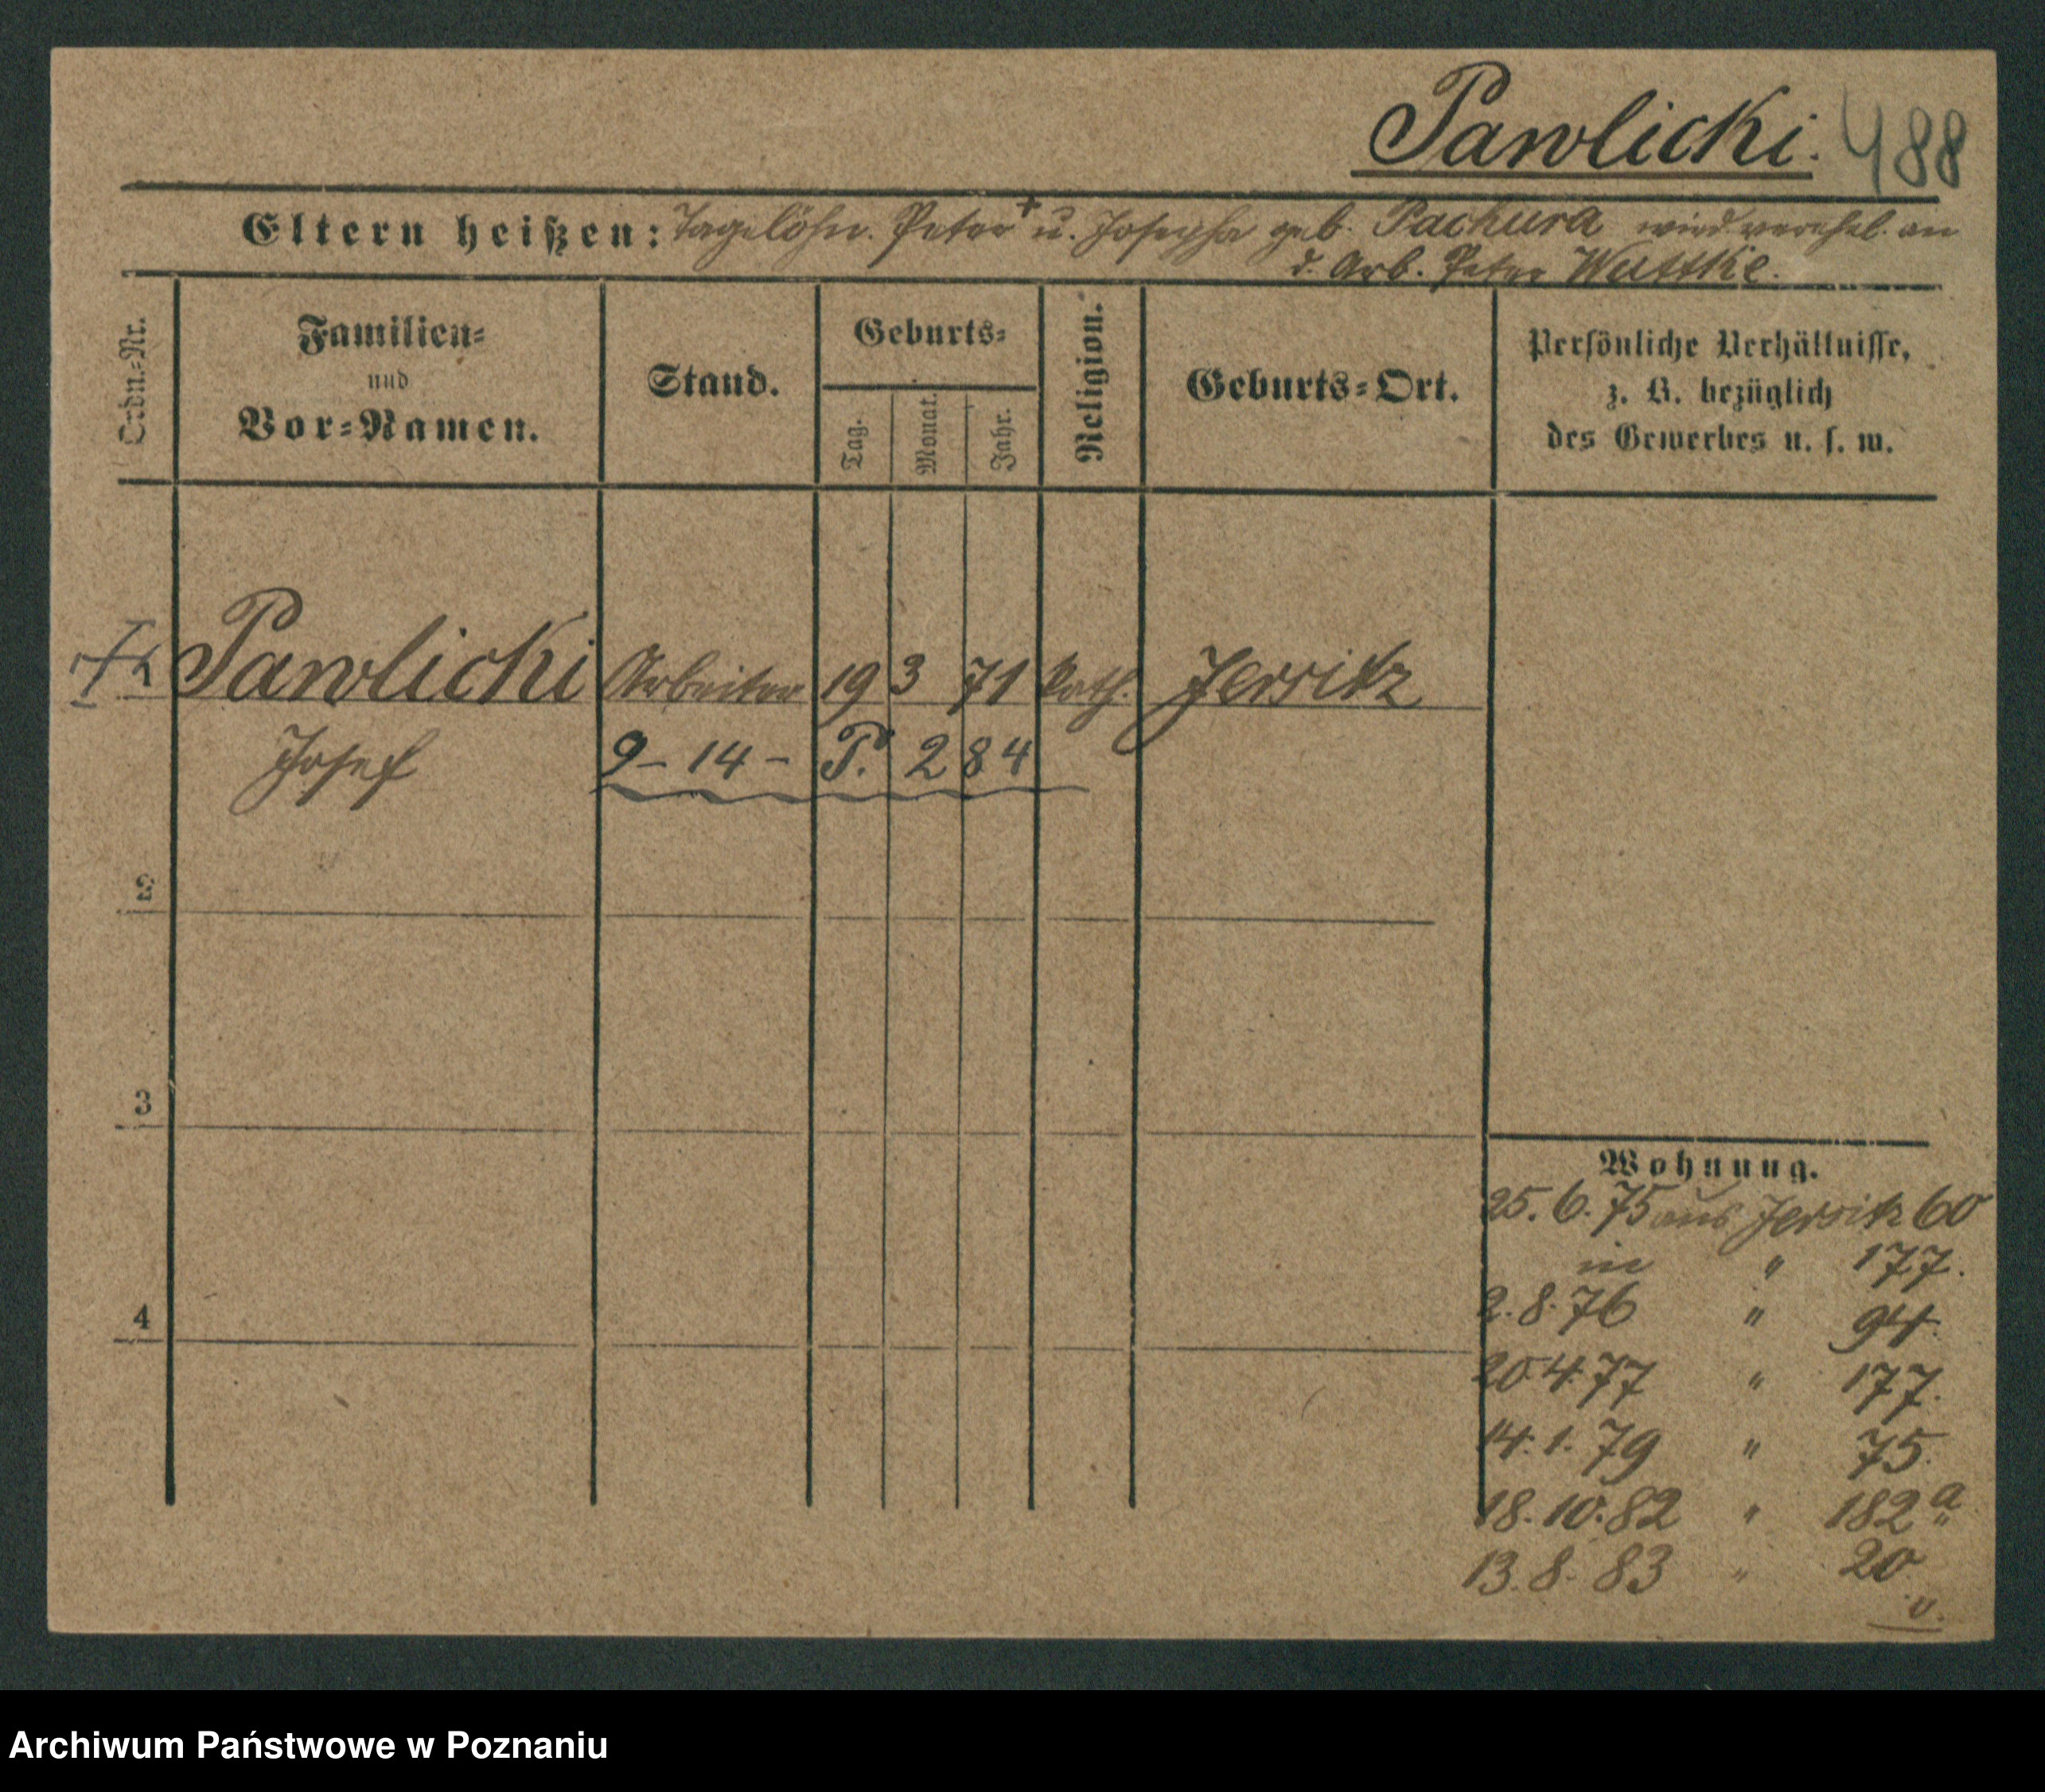 Pawlicki. 488
Eltern heißen: Tagelöhn. Peter + u. Josepha geb. Pachura wird verehel. an
d. Arb. Peter Wuttke.
Ordn.-Nr.
Familien=
und
Vor=Namen.
Stand.
Geburts=
Tag.
Monat.
Jahr.
Religion.
Geburts=Ort.
Persönliche Verhältnisse,
z. B. bezüglich
des Gewerbes u. s. w.
Pawlicki Arbeiter 19 3 71 kath. Jersitz
Josef 9 - 14 - P. 284
2
3
4
Wohnung.
25. 6. 75 aus Jersitz 60
in " 177.
2. 8. 76 " 94.
20 4. 77 " 177.
14. 1. 79 " 75.
18. 10. 82 " 182 a
13. 8. 83 " 20
v.
Archiwum Państwowe w Poznaniu